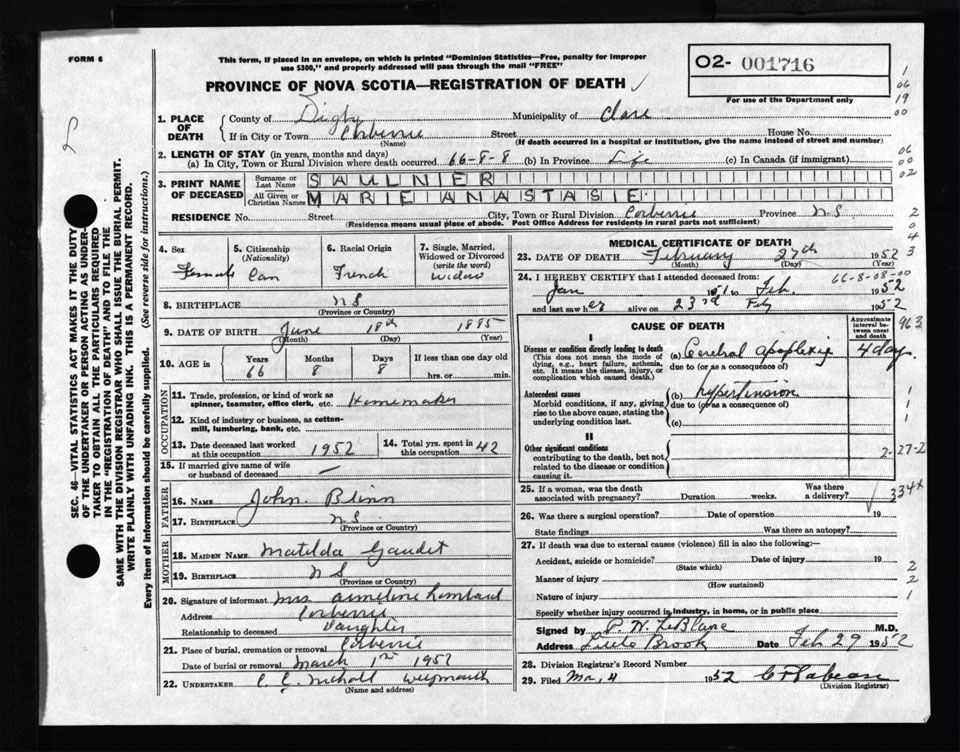 FORM 6
This form, if placed in an envelope, on which is printed "Dominion Statistics—Free, penalty for improper
use $300," and properly addressed will pass through the mail "FREE"
O2- 001716
For use of the Department only
PROVINCE OF NOVA SCOTIA—REGISTRATION OF DEATH
1. PLACE OF DEATH
County of Digby Municipality of Clare
If in City or Town Corberrie Street House No.
(Name) (If death occurred in a hospital or institution, give the name instead of street and number)
2. LENGTH OF STAY (in years, months and days)
(a) In City, Town or Rural Division where death occurred 66-8-8 (b) In Province Life (c) In Canada (if immigrant)
3. PRINT NAME OF DECEASED
Surname or Last Name SAULNIER
All Given or Christian Names MARIE ANASTASIE
RESIDENCE No. Street City, Town or Rural Division Corberrie Province N S
(Residence means usual place of abode. Post Office Address for residents in rural parts not sufficient)
4. Sex Female
5. Citizenship (Nationality) Can
6. Racial Origin French
7. Single, Married, Widowed or Divorced (write the word) Widow
8. BIRTHPLACE N S
(Province or Country)
9. DATE OF BIRTH June 18th 1885
(Month) (Day) (Year)
10. AGE in Years 66 Months 8 Days 8 If less than one day old hrs. or min.
OCCUPATION
11. Trade, profession, or kind of work as spinner, teamster, office clerk, etc. Homemaker
12. Kind of industry or business, as cotton-mill, lumbering, bank, etc.
13. Date deceased last worked at this occupation 1952
14. Total yrs. spent in this occupation 42
15. If married give name of wife or husband of deceased —
FATHER
16. NAME John Blinn
17. BIRTHPLACE N.S.
(Province or Country)
MOTHER
18. MAIDEN NAME Matilda Gaudet
19. BIRTHPLACE N S
(Province or Country)
20. Signature of informant Mrs Armeline Lombard
Address Corberrie
Relationship to deceased Daughter
21. Place of burial, cremation or removal Corberrie
Date of burial or removal March 1st 1952
22. UNDERTAKER Weymouth
(Name and address)
MEDICAL CERTIFICATE OF DEATH
23. DATE OF DEATH February 27th 1952
(Month) (Day) (Year)
24. I HEREBY CERTIFY that I attended deceased from
66-8-08-00
Jan to Feb. 1952
and last saw her alive on 23rd Feby 1952
CAUSE OF DEATH
Approximate interval between onset and death
963
I
Disease or condition directly leading to death
(This does not mean the mode of dying, e.g., heart failure, asthenia, etc. It means the disease, injury, or complication which caused death.)
(a) Cerebral apoplexie 4 day
due to (or as a consequence of)
Antecedent causes
Morbid conditions, if any, giving rise to the above cause, stating the underlying condition last.
(b) hypertension
due to (or as a consequence of)
(c)
II
Other significant conditions
contributing to the death, but not related to the disease or condition causing it.
2-27-2
25. If a woman, was the death associated with pregnancy? Duration weeks. Was there a delivery? 334x
26. Was there a surgical operation? Date of operation 19
State findings Was there an autopsy?
27. If death was due to external causes (violence) fill in also the following:—
Accident, suicide or homicide? Date of injury 19
(State which)
Manner of injury
(How sustained)
Nature of injury
Specify whether injury occurred in industry, in home, or in public place
Signed by P. W. LeBlanc M.D.
Address Little Brook Date Feb 29 1952
28. Division Registrar's Record Number
29. Filed Mar, 4 1952
(Division Registrar)
SEC. 46—VITAL STATISTICS ACT MAKES IT THE DUTY
OF THE UNDERTAKER OR PERSON ACTING AS UNDER-
TAKER TO OBTAIN ALL THE PARTICULARS REQUIRED
IN THE "REGISTRATION OF DEATH" AND TO FILE THE
SAME WITH THE DIVISION REGISTRAR WHO SHALL ISSUE THE BURIAL PERMIT.
WRITE PLAINLY WITH UNFADING INK. THIS IS A PERMANENT RECORD.
Every item of information should be carefully supplied. (See reverse side for instructions.)
1
06
19
00
06
00
02
2
0
4
3
1
1
1
2
2
1